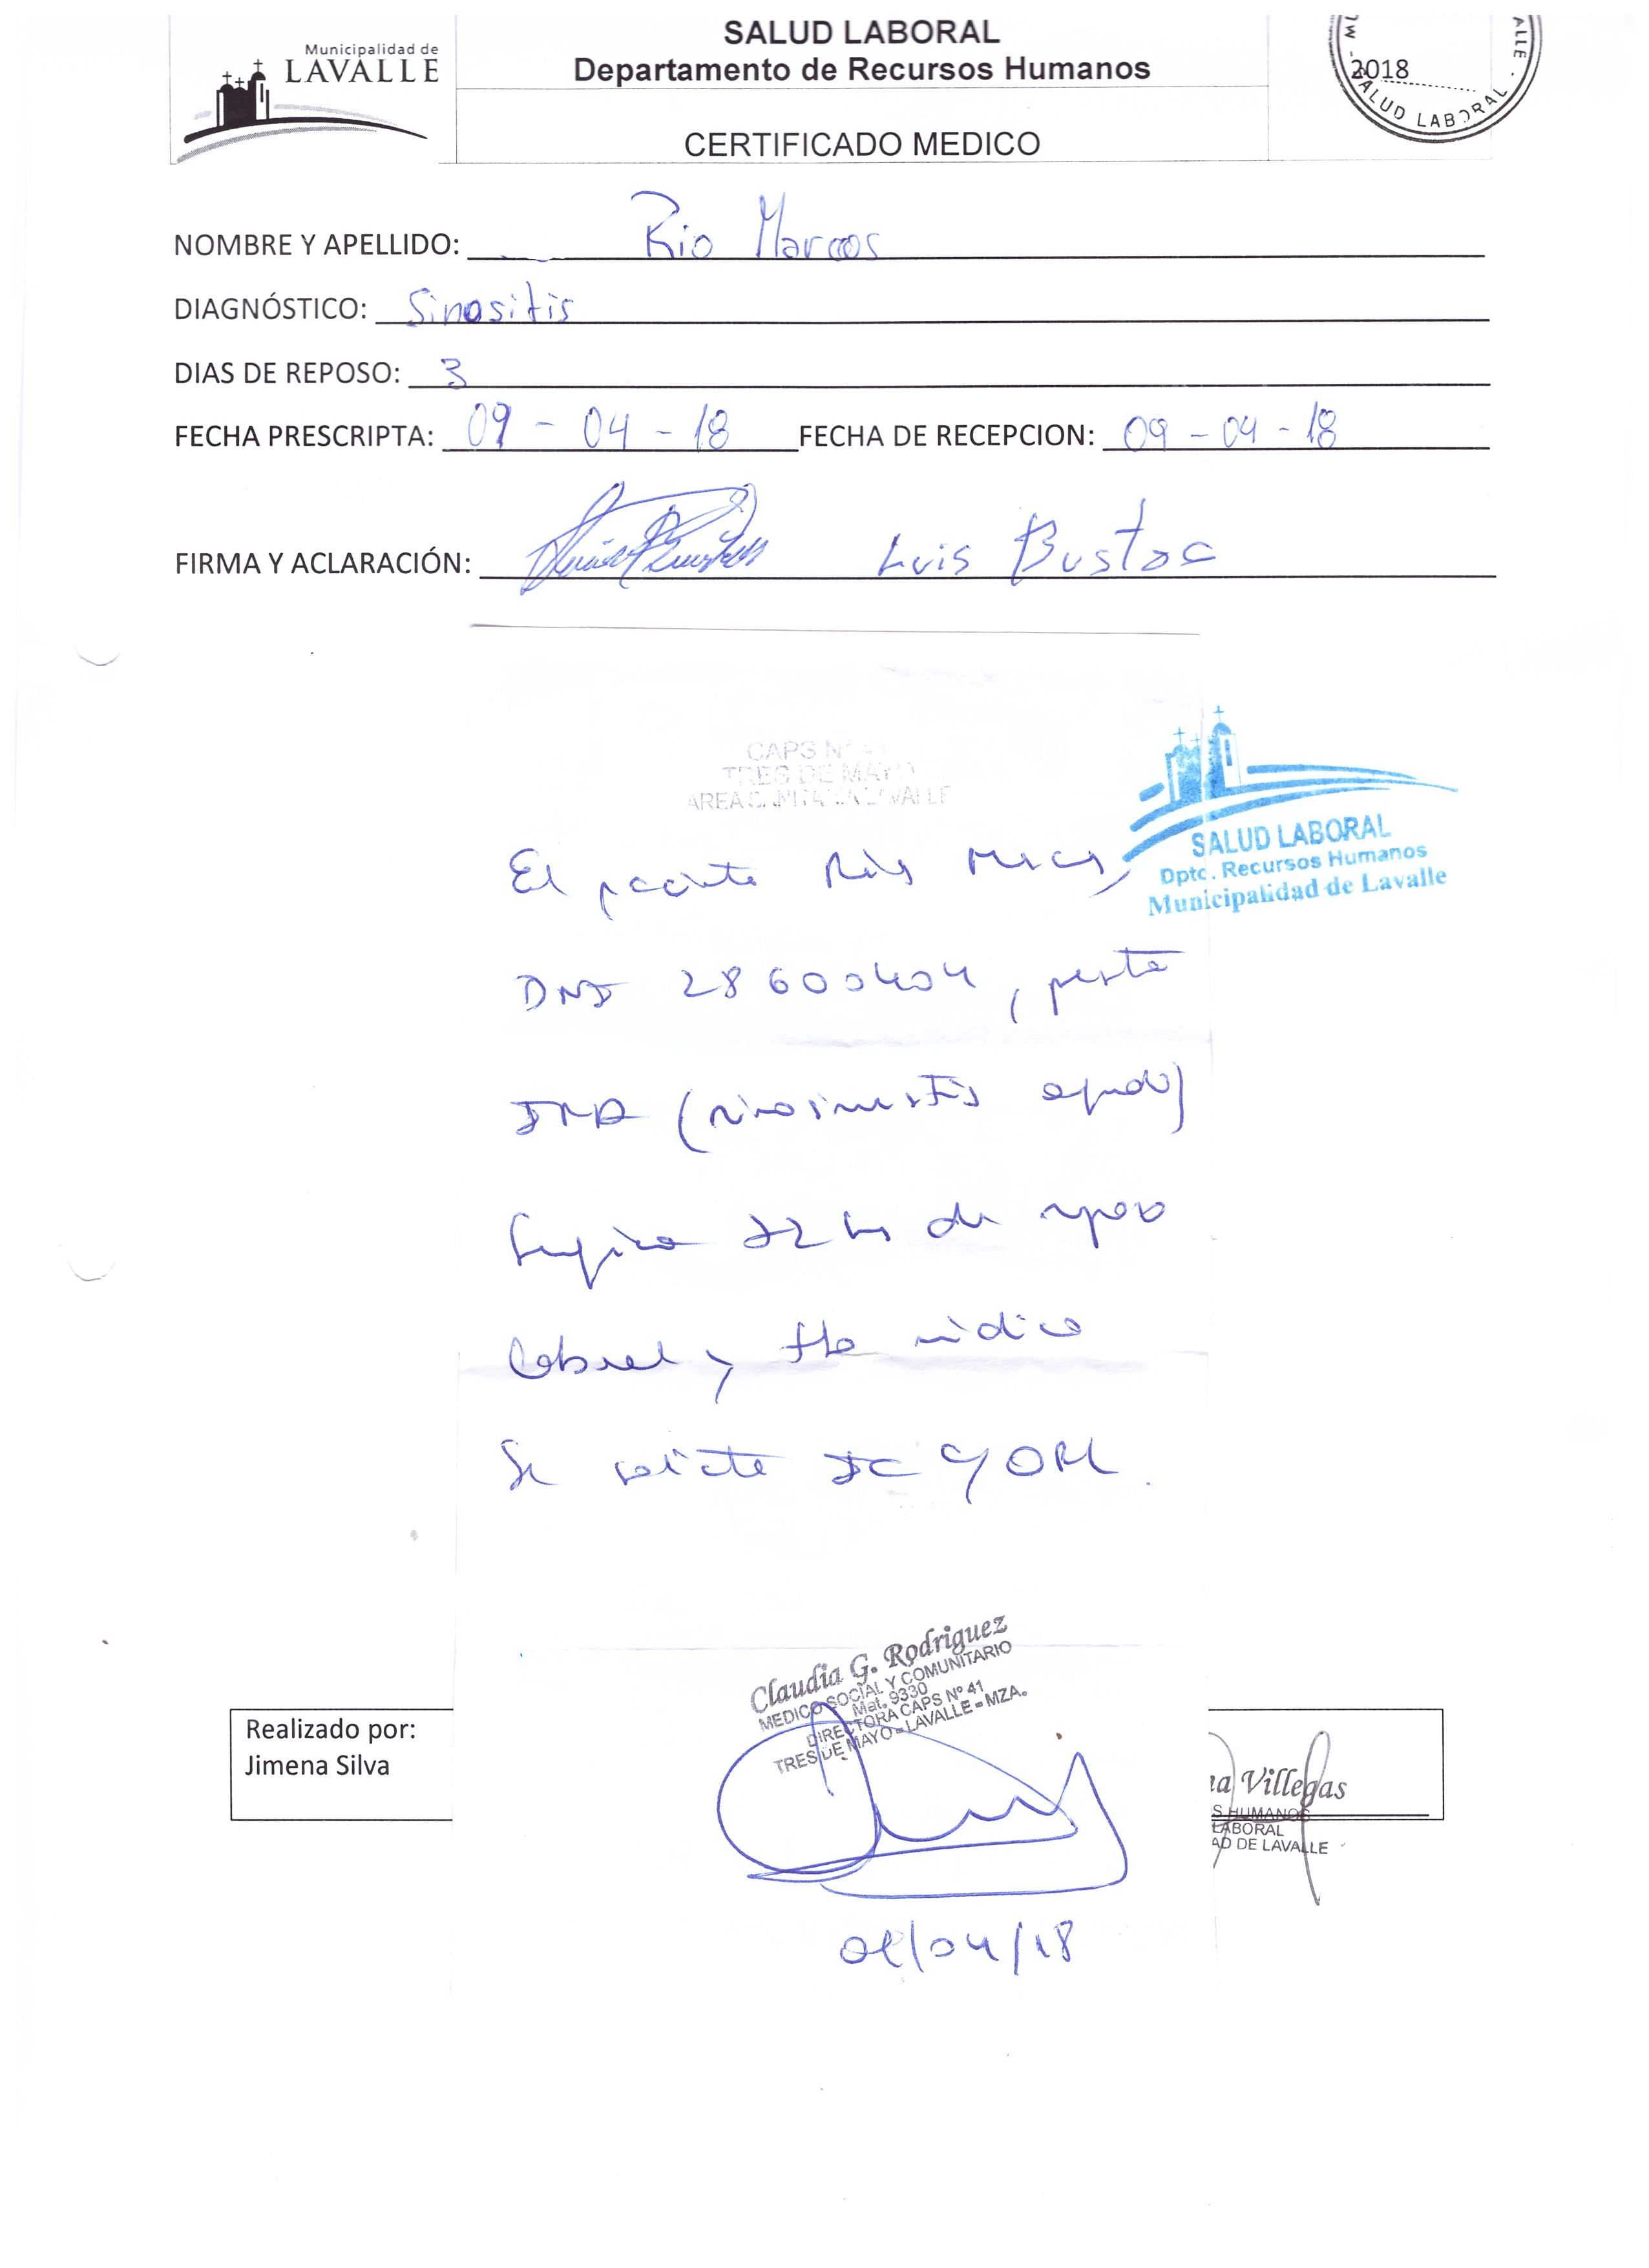 Municipalidad de
LAVALLE
SALUD LABORAL
Departamento de Recursos Humanos
CERTIFICADO MEDICO
2018
SALUD LABORAL
NOMBRE Y APELLIDO: Rio Marcos
DIAGNÓSTICO: Sinositis
DIAS DE REPOSO: 3
FECHA PRESCRIPTA: 09-04-18 FECHA DE RECEPCION: 09-04-18
FIRMA Y ACLARACIÓN: Luis Bustos
CAPS Nº 41
TRES DE MAYO
AREA SANITARIA LAVALLE
SALUD LABORAL
Dpto. Recursos Humanos
Municipalidad de Lavalle
El paciente
DNI 28600404,
(rinosinusitis aguda)
Sugiero 72 hs de reposo
laboral y tto médico
Se solicita IC y ORL.
Claudia G. Rodriguez
MEDICO SOCIAL Y COMUNITARIO
Mat. 9330
DIRECTORA CAPS Nº 41
TRES DE MAYO - LAVALLE - MZA.
Realizado por:
Jimena Silva
na Villegas
S HUMANOS
LABORAL
AD DE LAVALLE
/04/18